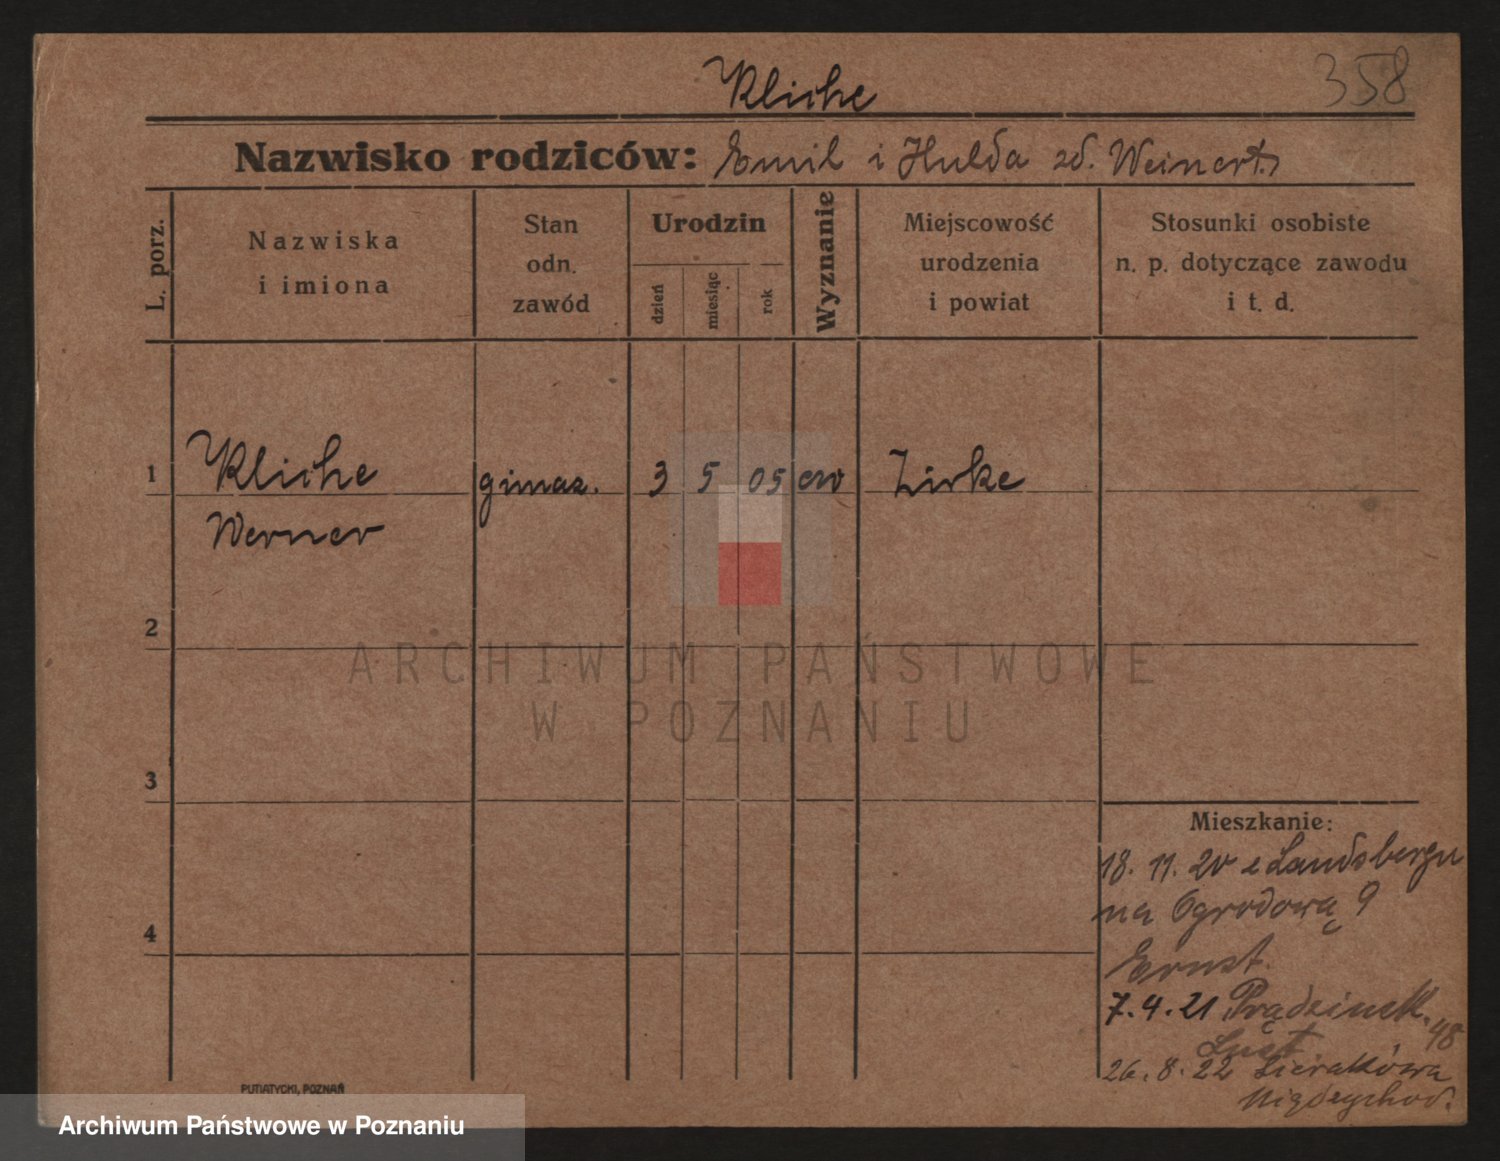 358
Kliche
Nazwisko rodziców: Emil i Hulda zd. Weinert
L. porz.
Nazwiska
i imiona
Stan
odn.
zawód
Urodzin
dzień
miesiąc
rok
Wyznanie
Miejscowość
urodzenia
i powiat
Stosunki osobiste
n. p. dotyczące zawodu
i t. d.
1 Kliche gimnaz. 3 5 05 ew Zirke
Werner
2
ARCHIWUM PAŃSTWOWE
W POZNANIU
3
Mieszkanie:
18. 11. 20 z Landsbergu
na Ogrodową 9
4
Ernst.
7. 4. 21 48
26. 8. 22 Sierakowa
Międzychod.
PUTIATYCKI, POZNAŃ
Archiwum Państwowe w Poznaniu